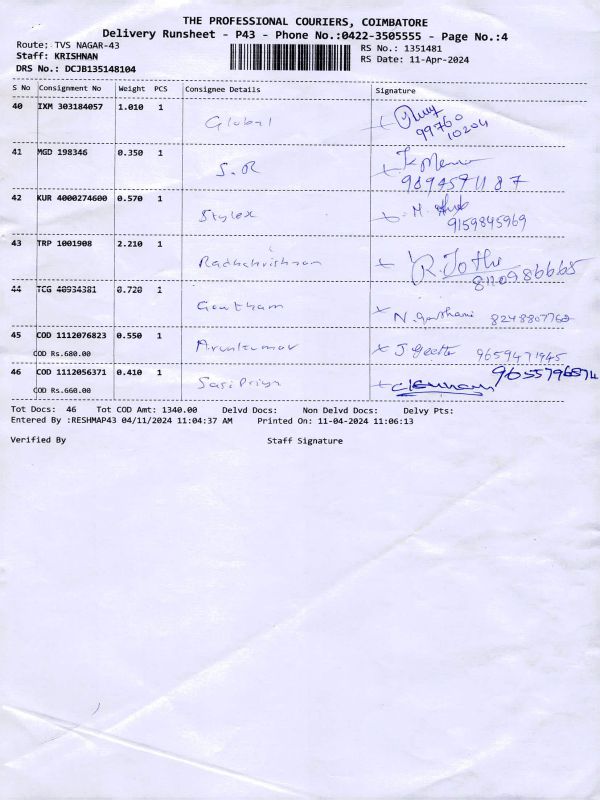 THE PROFESSIONAL COURIERS, COIMBATORE
Delivery Runsheet - P43 - Phone No.:0422-3505555 - Page No.:4
Route: TVS NAGAR-43 RS No.: 1351481
Staff: KRISHNAN RS Date: 11-Apr-2024
DRS No.: DCJB135148104
S No Consignment No Weight PCS Consignee Details Signature
40 IXM 303184057 1.010 1 Global 99760
10204
41 MGD 198346 0.350 1 S.R
9894571187
42 KUR 4000274600 0.570 1 Stylex M.
9159845969
43 TRP 1001908 2.210 1 Radhakrishnan R. Jothi
8110986665
44 TCG 40934381 0.720 1 Gowtham N. 8248807762
45 COD 1112076823 0.550 1 Arunkumar J. Geetha 9659471945
COD Rs.680.00
46 COD 1112056371 0.410 1 SasiPriya 9655796574
COD Rs.660.00
Tot Docs: 46 Tot COD Amt: 1340.00 Delvd Docs: Non Delvd Docs: Delvy Pts:
Entered By :RESHMAP43 04/11/2024 11:04:37 AM Printed On: 11-04-2024 11:06:13
Verified By Staff Signature